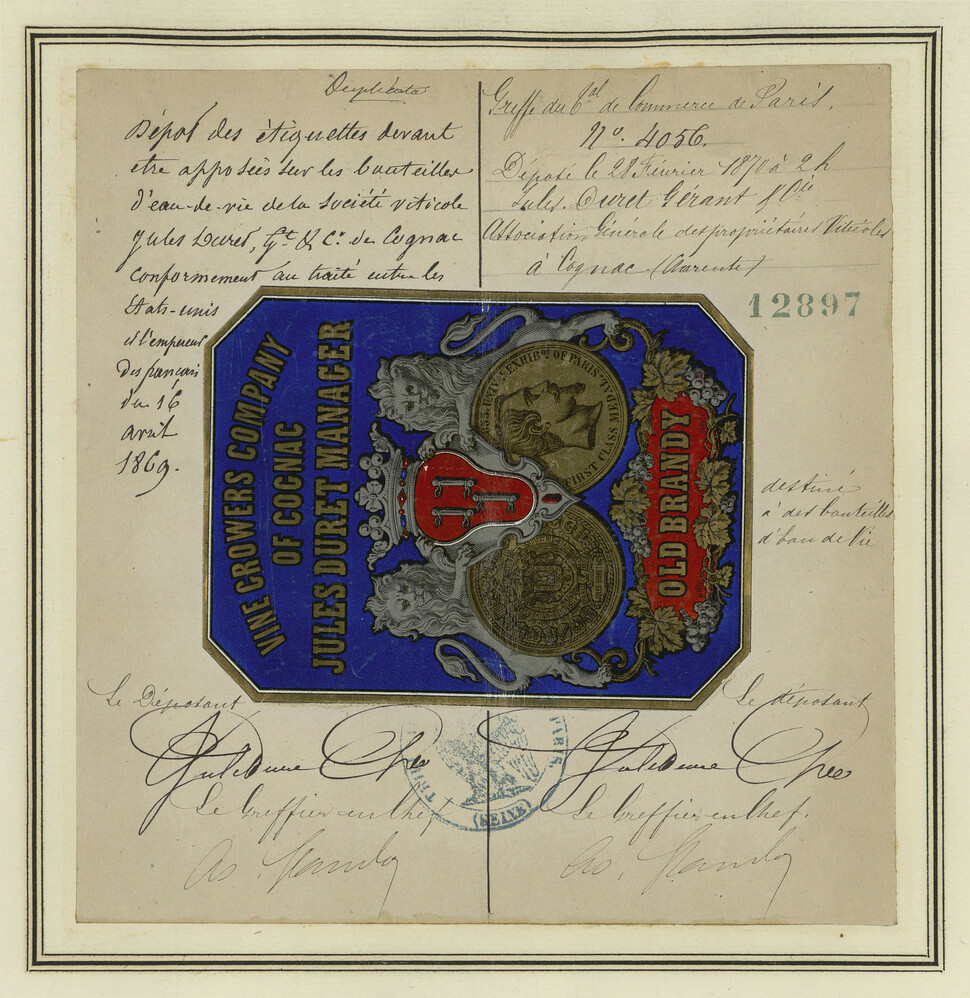 Duplicata
Dépôt des étiquettes devant
etre apposées sur les bouteilles
d'eau-de-vie de la Société viticole
Jules Duret, Gt & Cie de Cognac
conformement au traité entre les
États-unis
et l'empereur
des français
du 16
avril
1869.
Greffe du Cal de Commerce de Paris.
No. 4056.
Déposé le 28 Février 1870 à 2 h
Jules. Duret Gérant & Cie
Association Générale des propriétaires Viticoles
à Cognac (Charente)
12897
VINE GROWERS COMPANY
OF COGNAC
JULES DURET MANAGER
EXHIBon OF PARIS
FIRST CLASS MEDAL
OLD BRANDY
destiné
à des bouteilles
d'eau de Vie
Le Déposant
Le Greffier en Chef
Le déposant
Le Greffier en Chef.
PARIS.
(SEINE)